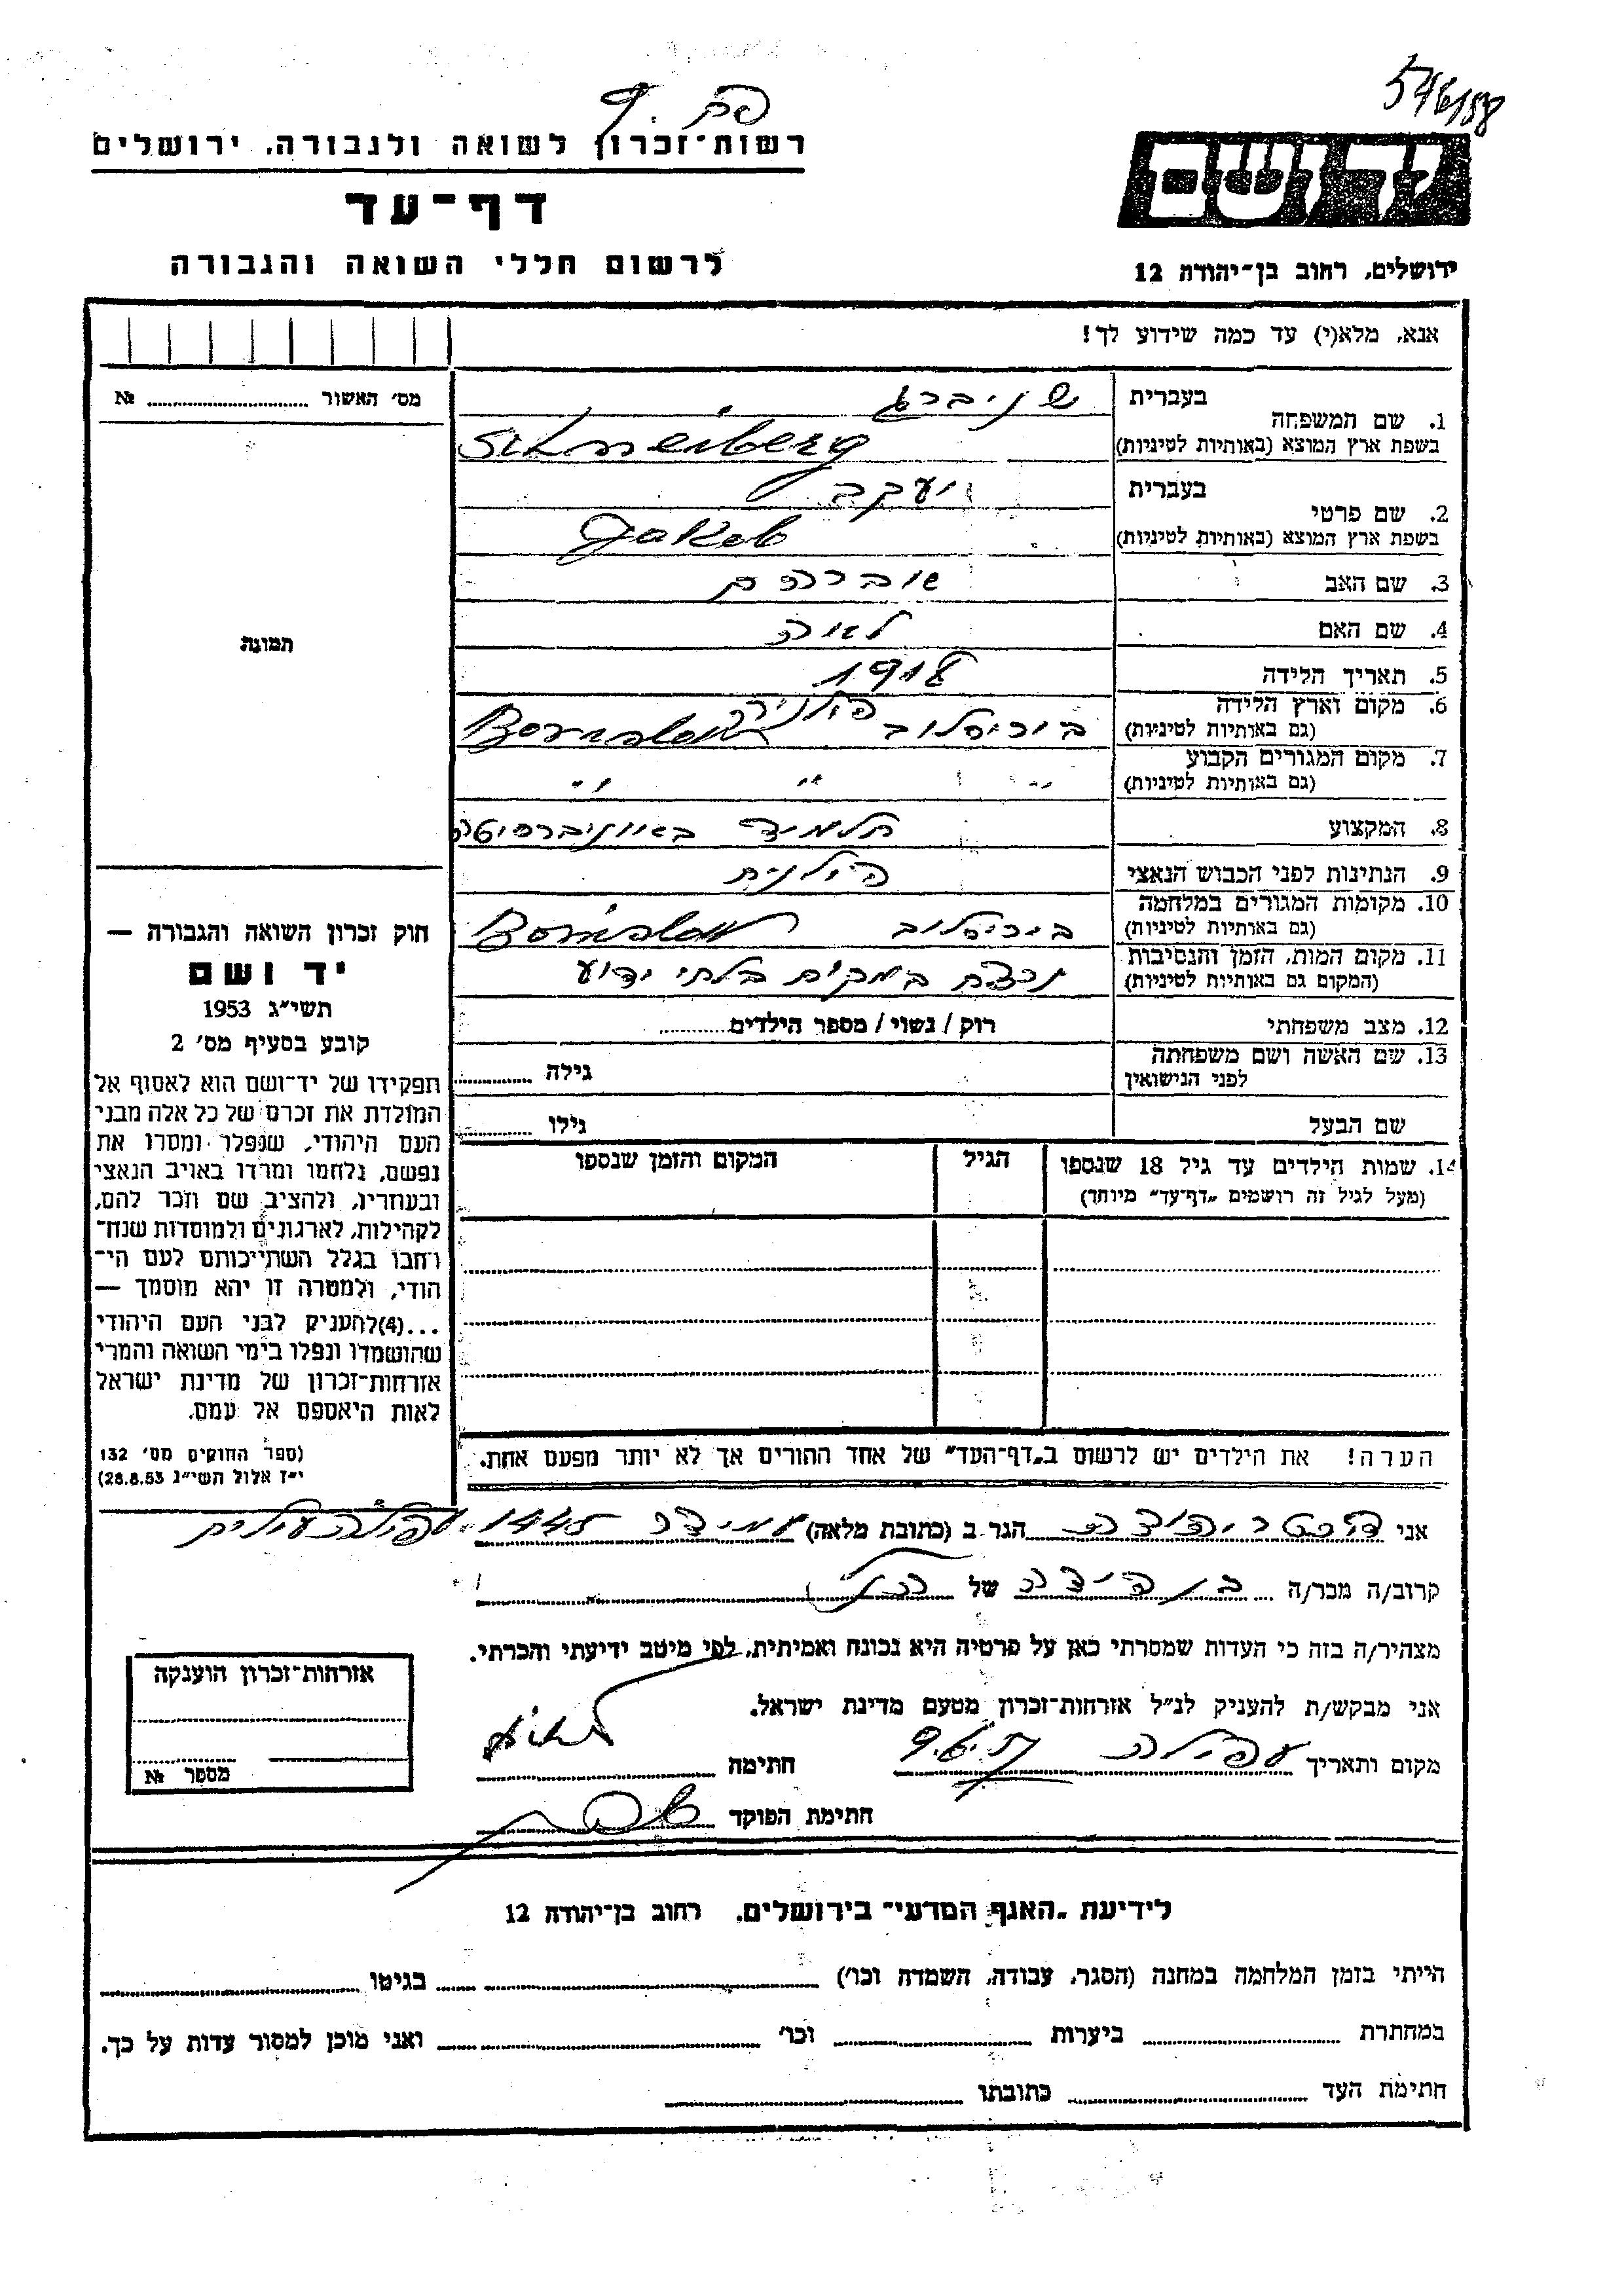 546/58
רשות-זכרון לשואה ולגבורה, ירושלים
דף-עד
לרשום חללי השואה והגבורה
יד ושם
ירושלים, רחוב בן-יהודה 12
אנא, מלא(י) עד כמה שידוע לך!
מס' האשור № 
1. שם המשפחה
בעברית שניברג
בשפת ארץ המוצא (באותיות לטיניות) Schneiberg
2. שם פרטי
בעברית יעקב
בשפת ארץ המוצא (באותיות לטיניות) Jakob
3. שם האב אברהם
4. שם האם לאה
5. תאריך הלידה 1918
6. מקום וארץ הלידה (גם באותיות לטיניות) בוריסלוב פולניה Borislaw
7. מקום המגורים הקבוע (גם באותיות לטיניות) " " "
8. המקצוע תלמיד באוניברסיטה
9. הנתינות לפני הכבוש הנאצי פולנית
10. מקומות המגורים במלחמה (גם באותיות לטיניות) בוריסלוב Borislaw
11. מקום המות, הזמן והנסיבות (המקום גם באותיות לטיניות) נרצח במקום בלתי ידוע
12. מצב משפחתי רוק / נשוי / מספר הילדים
13. שם האשה ושם משפחתה לפני הנישואין גילה
שם הבעל גילו
14. שמות הילדים עד גיל 18 שנספו
(מעל לגיל זה רושמים „דף-עד" מיוחד)
הגיל
המקום והזמן שנספו
הערה! את הילדים יש לרשום ב„דף-העד" של אחד ההורים אך לא יותר מפעם אחת.
תמונה
חוק זכרון השואה והגבורה —
יד ושם
תשי"ג 1953
קובע בסעיף מס' 2
תפקידו של יד-ושם הוא לאסוף אל
המולדת את זכרם של כל אלה מבני
העם היהודי, שנפלו ומסרו את
נפשם, נלחמו ומרדו באויב הנאצי
ובעוזריו, ולהציב שם וזכר להם,
לקהילות, לארגונים ולמוסדות שנח-
רבו בגלל השתייכותם לעם הי-
הודי, ולמטרה זו יהא מוסמך —
...(4)להעניק לבני העם היהודי
שהושמדו ונפלו בימי השואה והמרי
אזרחות-זכרון של מדינת ישראל
לאות היאספם אל עמם.
(ספר החוקים מס' 132
י"ז אלול תשי"ג 28.8.53)
אני יהודה הגר ב (כתובת מלאה) עמידר 1445 עפולה עילית
קרוב/ה מכר/ה בן דודה של הנ"ל
מצהיר/ה בזה כי העדות שמסרתי כאן על פרטיה היא נכונה ואמיתית, לפי מיטב ידיעתי והכרתי.
אני מבקש/ת להעניק לנ"ל אזרחות-זכרון מטעם מדינת ישראל.
מקום ותאריך עפולה חתימה
חתימת הפוקד
אזרחות-זכרון הוענקה
מספר №
לידיעת „האגף המדעי" בירושלים, רחוב בן-יהודה 12
הייתי בזמן המלחמה במחנה (הסגר, עבודה, השמדה וכו') בגיטו
במחתרת ביערות וכו' ואני מוכן למסור עדות על כך.
חתימת העד כתובתו